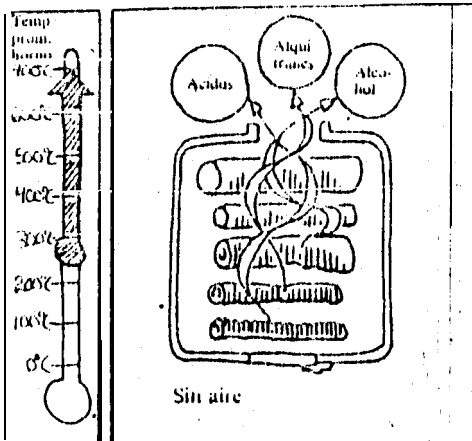 Temp
prom.
horno
600℃
500℃
400℃
300℃
200℃
100℃
0℃
Acidos
Alqui
tranes
Alco-
hol
Sin aire